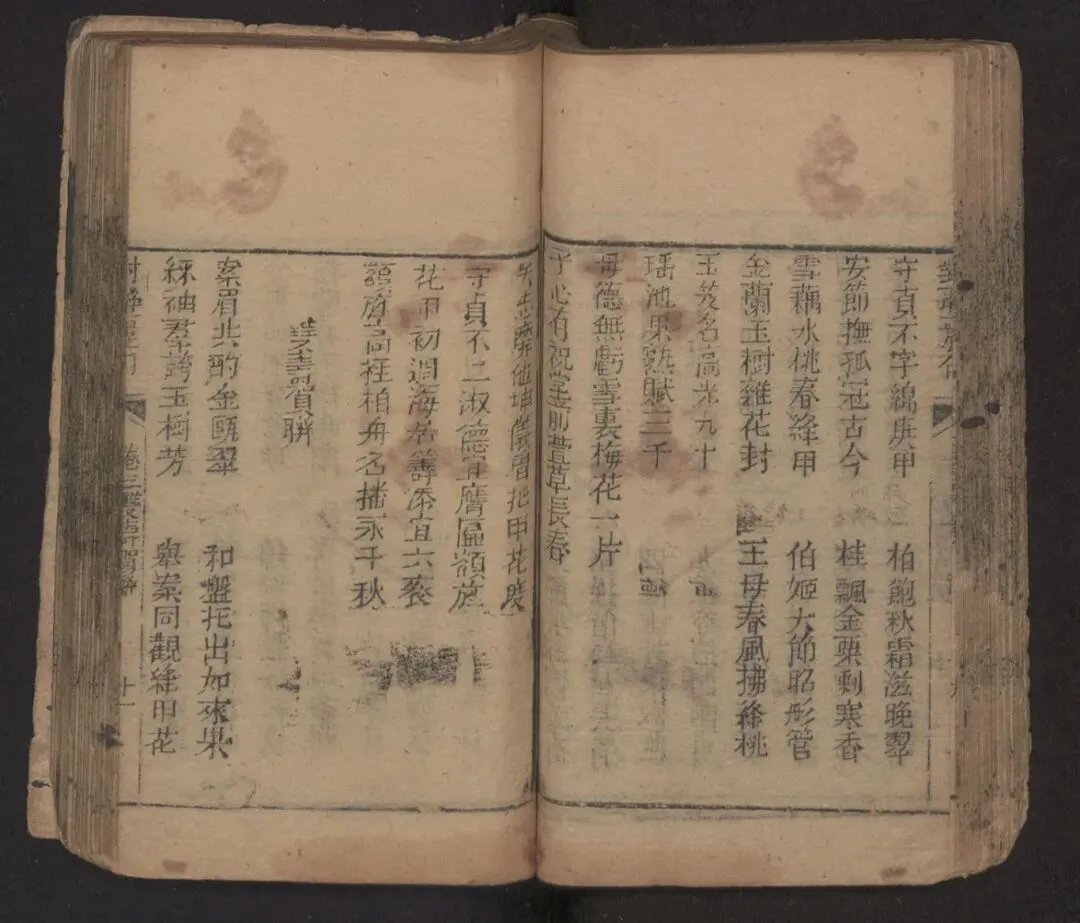 守貞不字綿庚甲 柏飽秋霜滋晚翠
安節撫孤冠古今 桂飄金粟剩寒香
雪藕水桃春絳甲 伯姬大節昭彤管
金蘭玉樹雜花封 王母春風拂絳桃
玉笈名高光九十
瑤池果熟賦三千
母德無虧雪裏梅花一片
子心有祝堂前萱草長春
矢志靡他坤儀曾把甲花慶
守貞不二淑德宜膺匾額旌
花甲初週海屋籌添宜六袠
額旌高挂柏舟名播永千秋
雙壽眉聯
案眉共酌金甌翠 和盤托出如來果
綵袖羣誇玉樹芳 舉案同觀絳甲花
卷三雙壽 賀聯 十一